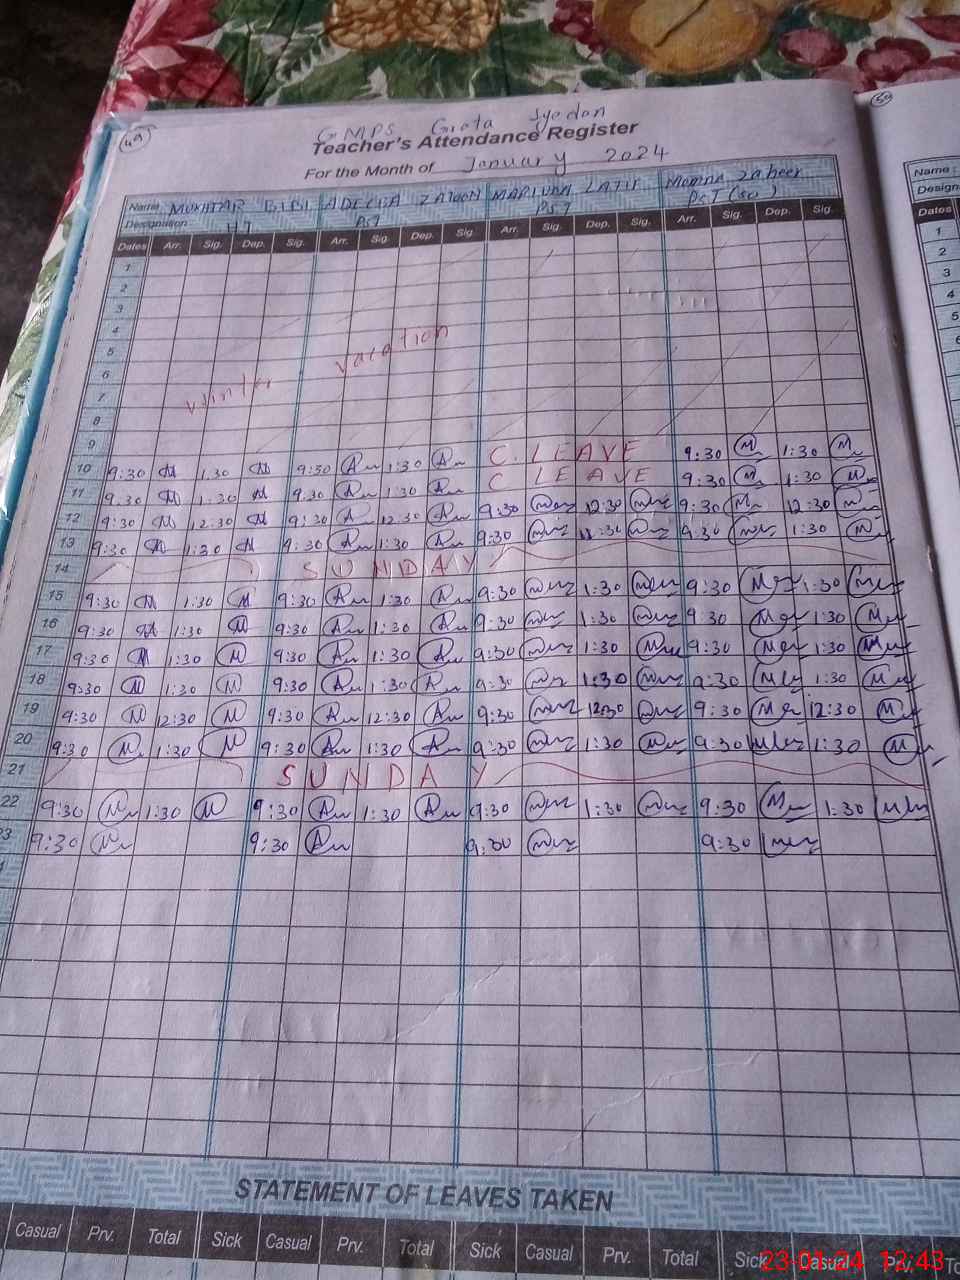 49
GMPS Grota Syedan
50
Teacher's Attendance Register
For the Month of January 2024
Name MUKHTAR BIBI ADEEBA ZATOON MARIUM LATIF Momna Zaheer
Designation HT PST PST PST (sci)
Dates Arr. Sig. Dep. Sig. Arr. Sig. Dep. Sig. Arr. Sig. Dep. Sig. Arr. Sig. Dep. Sig.
1
2
3
4
5
6
7
8
9
Winter vacation
10 9:30 M 1:30 M 9:30 1:30 C. LEAVE 9:30 1:30
11 9:30 M 1:30 M 9:30 1:30 C LEAVE 9:30 1:30
12 9:30 M 12:30 M 9:30 12:30 9:30 12:30 9:30 12:30
13 9:30 M 1:30 M 9:30 1:30 9:30 9:30 1:30
14 SUNDAY
15 9:30 M 1:30 M 9:30 1:30 9:30 1:30 9:30 1:30
16 9:30 M 1:30 M 9:30 1:30 9:30 1:30 9:30 1:30
17 9:30 M 1:30 M 9:30 1:30 9:30 1:30 9:30 1:30
18 9:30 M 1:30 M 9:30 1:30 9:30 1:30 9:30 1:30
19 9:30 M 12:30 M 9:30 12:30 9:30 12:30 9:30 12:30
20 9:30 M 1:30 M 9:30 1:30 9:30 1:30 9:30 1:30
21 SUNDAY
22 9:30 M 1:30 M 9:30 1:30 9:30 1:30 9:30 1:30
23 9:30 9:30 9:30 9:30
STATEMENT OF LEAVES TAKEN
Casual Prv. Total Sick Casual Prv. Total Sick Casual Prv. Total Sick Casual Prv.
Name
Design
Dates
1
2
3
4
5
23-01-24 12:43